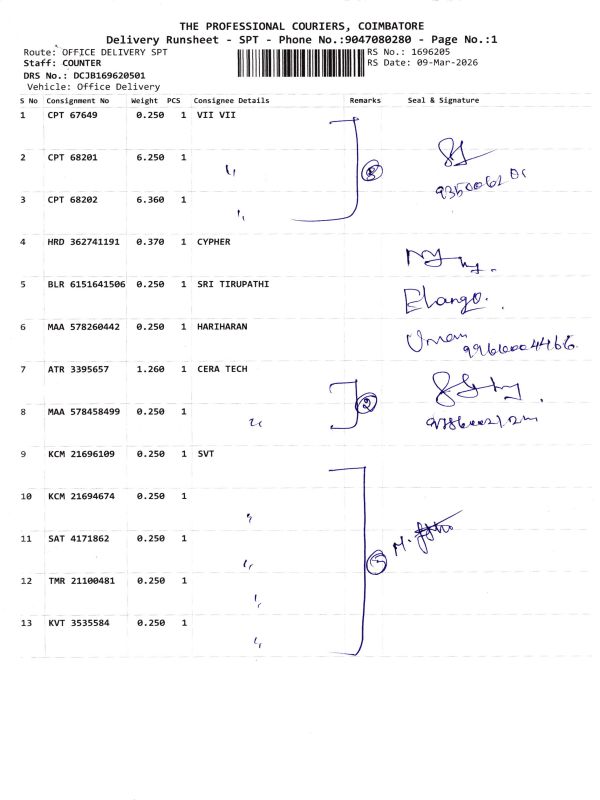 THE PROFESSIONAL COURIERS, COIMBATORE
Delivery Runsheet - SPT - Phone No.:9047080280 - Page No.:1
Route: OFFICE DELIVERY SPT RS No.: 1696205
Staff: COUNTER RS Date: 09-Mar-2026
DRS No.: DCJB169620501
Vehicle: Office Delivery
S No Consignment No Weight PCS Consignee Details Remarks Seal & Signature
1 CPT 67649 0.250 1 VII VII
2 CPT 68201 6.250 1 "
3 CPT 68202 6.360 1 "
4 HRD 362741191 0.370 1 CYPHER
5 BLR 6151641506 0.250 1 SRI TIRUPATHI Elango.
6 MAA 578260442 0.250 1 HARIHARAN
7 ATR 3395657 1.260 1 CERA TECH
8 MAA 578458499 0.250 1 " 2
9 KCM 21696109 0.250 1 SVT
10 KCM 21694674 0.250 1 "
11 SAT 4171862 0.250 1 "
12 TMR 21100481 0.250 1 "
13 KVT 3535584 0.250 1 "